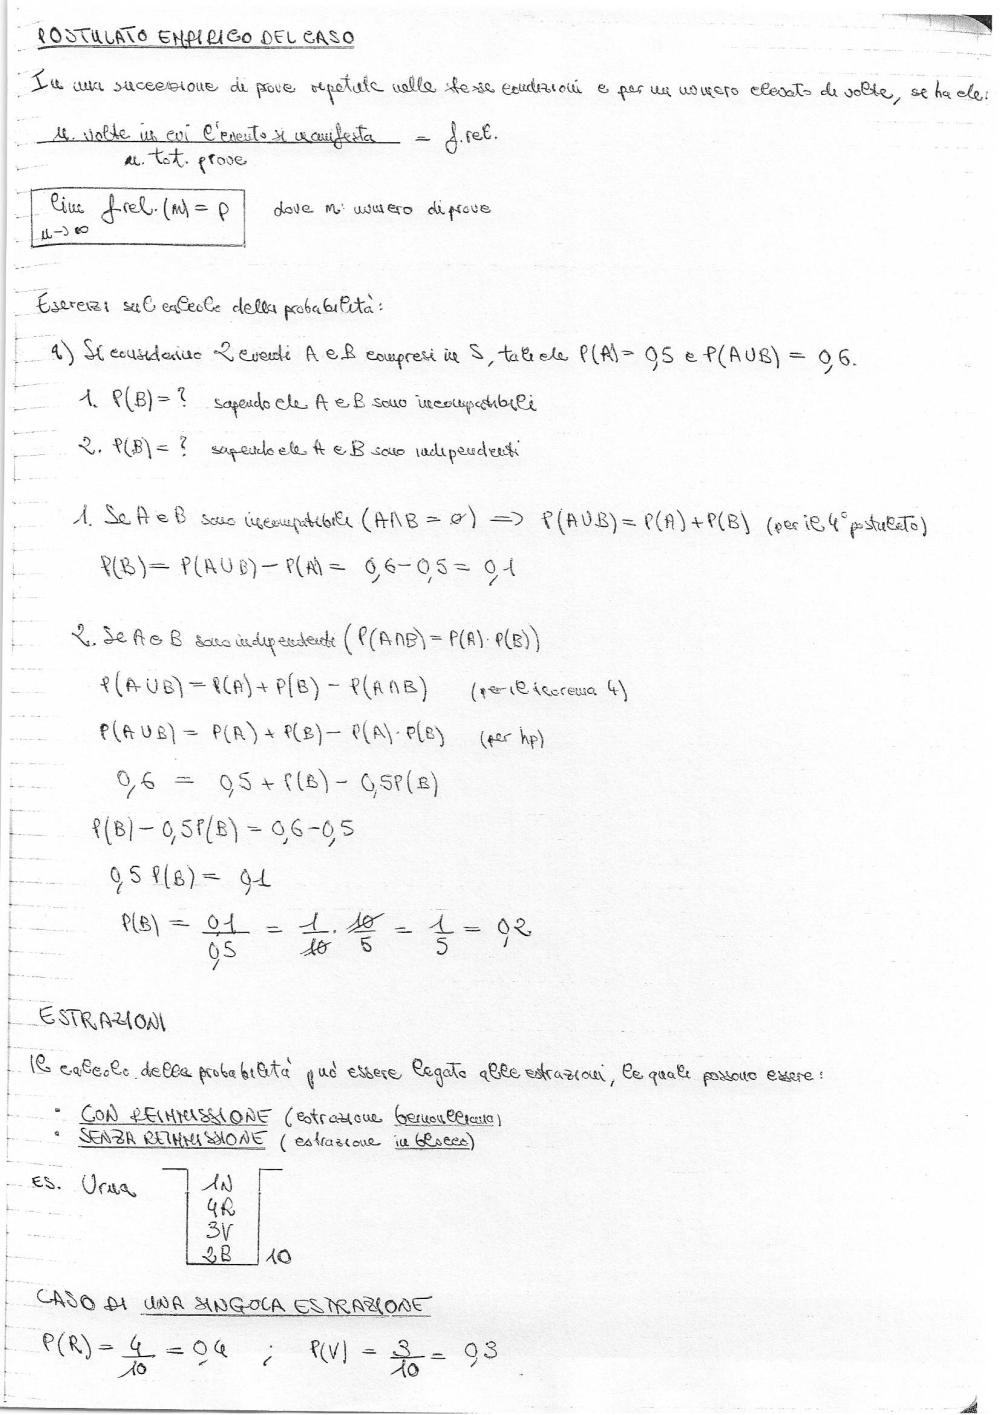 POSTULATO EMPIRICO DEL CASO
In una successione di prove ripetute nelle stesse condizioni e per un numero elevato di volte, si ha che:
n. volte in cui l'evento si manifesta / n. tot. prove = f.rel.
lim f.rel.(n) = p dove n: numero di prove
n→∞
Esercizi sul calcolo della probabilità:
1) Si considerino 2 eventi A e B compresi in S, tali che P(A) = 0,5 e P(A∪B) = 0,6.
1. P(B) = ? sapendo che A e B sono incompatibili
2. P(B) = ? sapendo che A e B sono indipendenti
1. Se A e B sono incompatibili (A∩B = ∅) => P(A∪B) = P(A) + P(B) (per il 4° postulato)
P(B) = P(A∪B) - P(A) = 0,6 - 0,5 = 0,1
2. Se A e B sono indipendenti (P(A∩B) = P(A)·P(B))
P(A∪B) = P(A) + P(B) - P(A∩B) (per il teorema 4)
P(A∪B) = P(A) + P(B) - P(A)·P(B) (per hp)
0,6 = 0,5 + P(B) - 0,5P(B)
P(B) - 0,5P(B) = 0,6 - 0,5
0,5 P(B) = 0,1
P(B) = 0,1/0,5 = 1/10 · 10/5 = 1/5 = 0,2
ESTRAZIONI
Il calcolo della probabilità può essere legato alle estrazioni, le quali possono essere:
• CON REIMMISSIONE (estrazione bernoulliana)
• SENZA REIMMISSIONE (estrazione in blocco)
ES. Urna 1N
4R
3V
2B 10
CASO DI UNA SINGOLA ESTRAZIONE
P(R) = 4/10 = 0,4 ; P(V) = 3/10 = 0,3